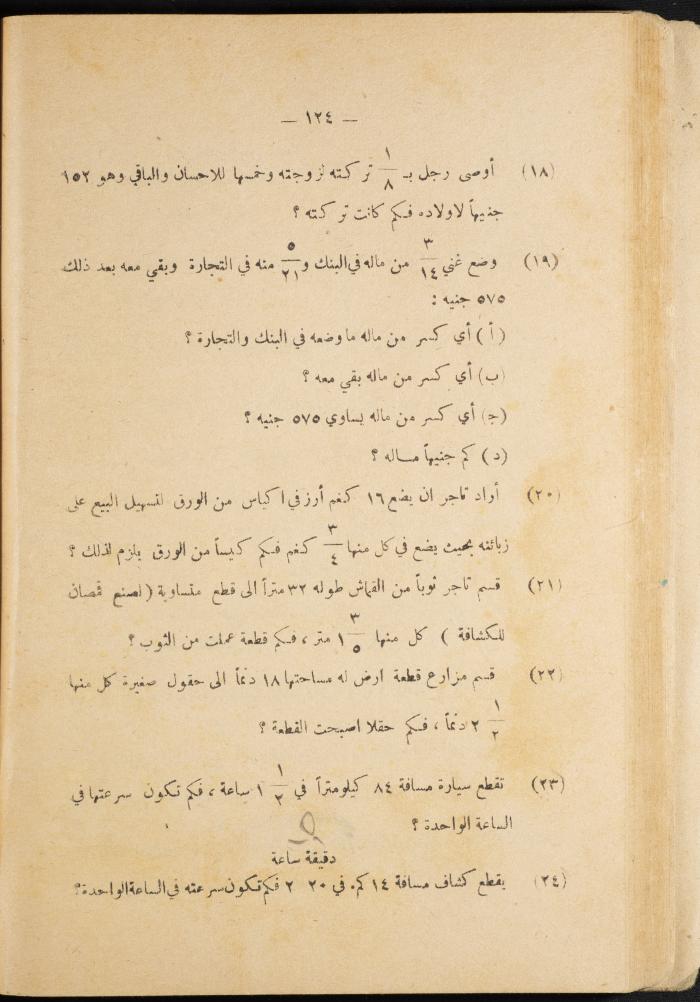 — ١٢٤ —
(١٨) أوصى رجل بـ ١/٨ تركته لزوجته وخمسها للاحسان والباقي وهو ١٥٢
جنيهاً لاولاده فكم كانت تركته ؟
(١٩) وضع غني ٣/١٤ من ماله في البنك و ٥/٢١ منه في التجارة وبقي معه بعد ذلك
٥٧٥ جنيه :
(أ) أي كسر من ماله ما وضعه في البنك والتجارة ؟
(ب) أي كسر من ماله بقي معه ؟
(ج) أي كسر من ماله يساوي ٥٧٥ جنيه ؟
(د) كم جنيهاً مساله ؟
(٢٠) أراد تاجر ان يضع ١٦ كغم أرز في اكياس من الورق لتسهيل البيع على
زبائنه بحيث يضع في كل منها ٣/٤ كغم فكم كيساً من الورق يلزم لذلك ؟
(٢١) قسم تاجر ثوباً من القماش طوله ٣٢ متراً الى قطع متساوية (لصنع قمصان
للكشافة ) كل منها ١ ٣/٥ متر ، فكم قطعة عملت من الثوب ؟
(٢٢) قسم مزارع قطعة ارض له مساحتها ١٨ دنماً الى حقول صغيرة كل منها
٢ ١/٢ دنماً ، فكم حقلا اصبحت القطعة ؟
(٢٣) تقطع سيارة مسافة ٨٤ كيلومتراً في ١ ١/٢ ساعة ، فكم تكون سرعتها في
الساعة الواحدة ؟
دقيقة ساعة
(٢٤) يقطع كشاف مسافة ١٤ كم. في ٢٠ ٢ فكم تكون سرعته في الساعة الواحدة ؟